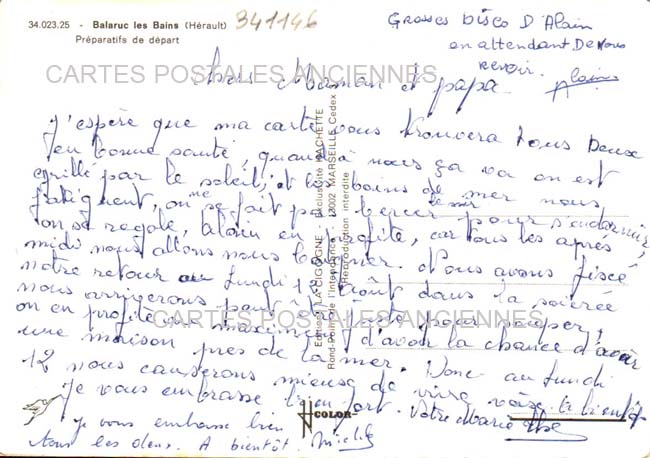 34.023.25 - Balaruc les Bains (Hérault)
Préparatifs de départ
341146
Grosses bisco D'Alain
en attendant De vous
revoir.
Alain
CARTES POSTALES ANCIENNES
Chers Maman et papa.
J'espère que ma carte vous trouvera tous deux
en bonne santé, quand à nous ça va on est
grillé par le soleil, et les bains de mer nous
fatiguent, on ne se fait pas bercer pour s'endormir,
on se régale, Alain en profite, car tous les après
midi nous allons nous baigner. Nous avons fixé
notre retour au lundi 12 août dans la soirée
nous arriverons pour souper,
on en profite au maximum d'avoir la chance d'avoir
CARTES POSTALES ANCIENNES
une maison près de la mer. Donc au lundi
12 nous causerons mieux de vive voix à bientôt
Je vous embrasse bien fort. Votre Marie
Je vous embrasse bien
tous les deux. A bientôt. Michel
Editions "LA CIGOGNE" - Exclusivité HACHETTE
Rond-Point de l'Intendance 13002 MARSEILLE Cedex
Reproduction interdite
COLOR